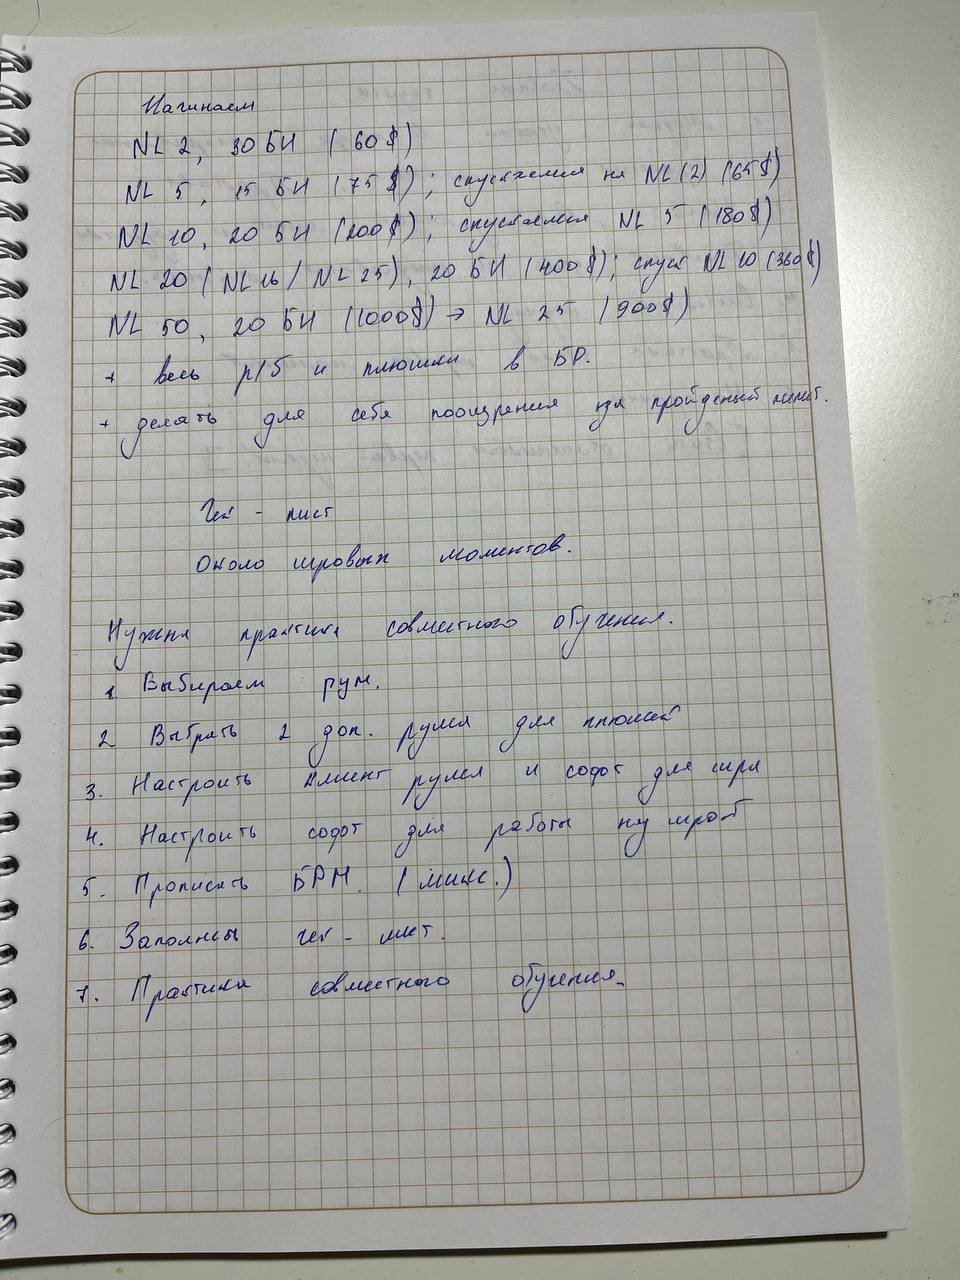 Начинаем
NL 2, 30 БИ (60$)
NL 5, 15 БИ (75$); спускаемся на NL(2) (65$)
NL 10, 20 БИ (200$); спускаемся NL 5 (180$)
NL 20 (NL 16 / NL 25), 20 БИ (400$); спуск NL 10 (360$)
NL 50, 20 БИ (1000$) → NL 25 (900$)
+ весь р/б и плюшки в БР.
+ делать для себя поощрения за пройденый лимит.
Чек - лист
Около игровых моментов.
Нужна практика совместного обучения.
1. Выбираем рум.
2. Выбрать 2 доп. рума для плюшек
3. Настроить клиент рума и софт для игры
4. Настроить софт для работы над игрой
5. Прописать БРМ. (микс.)
6. Заполнен чек - лист.
7. Практика совместного обучения.